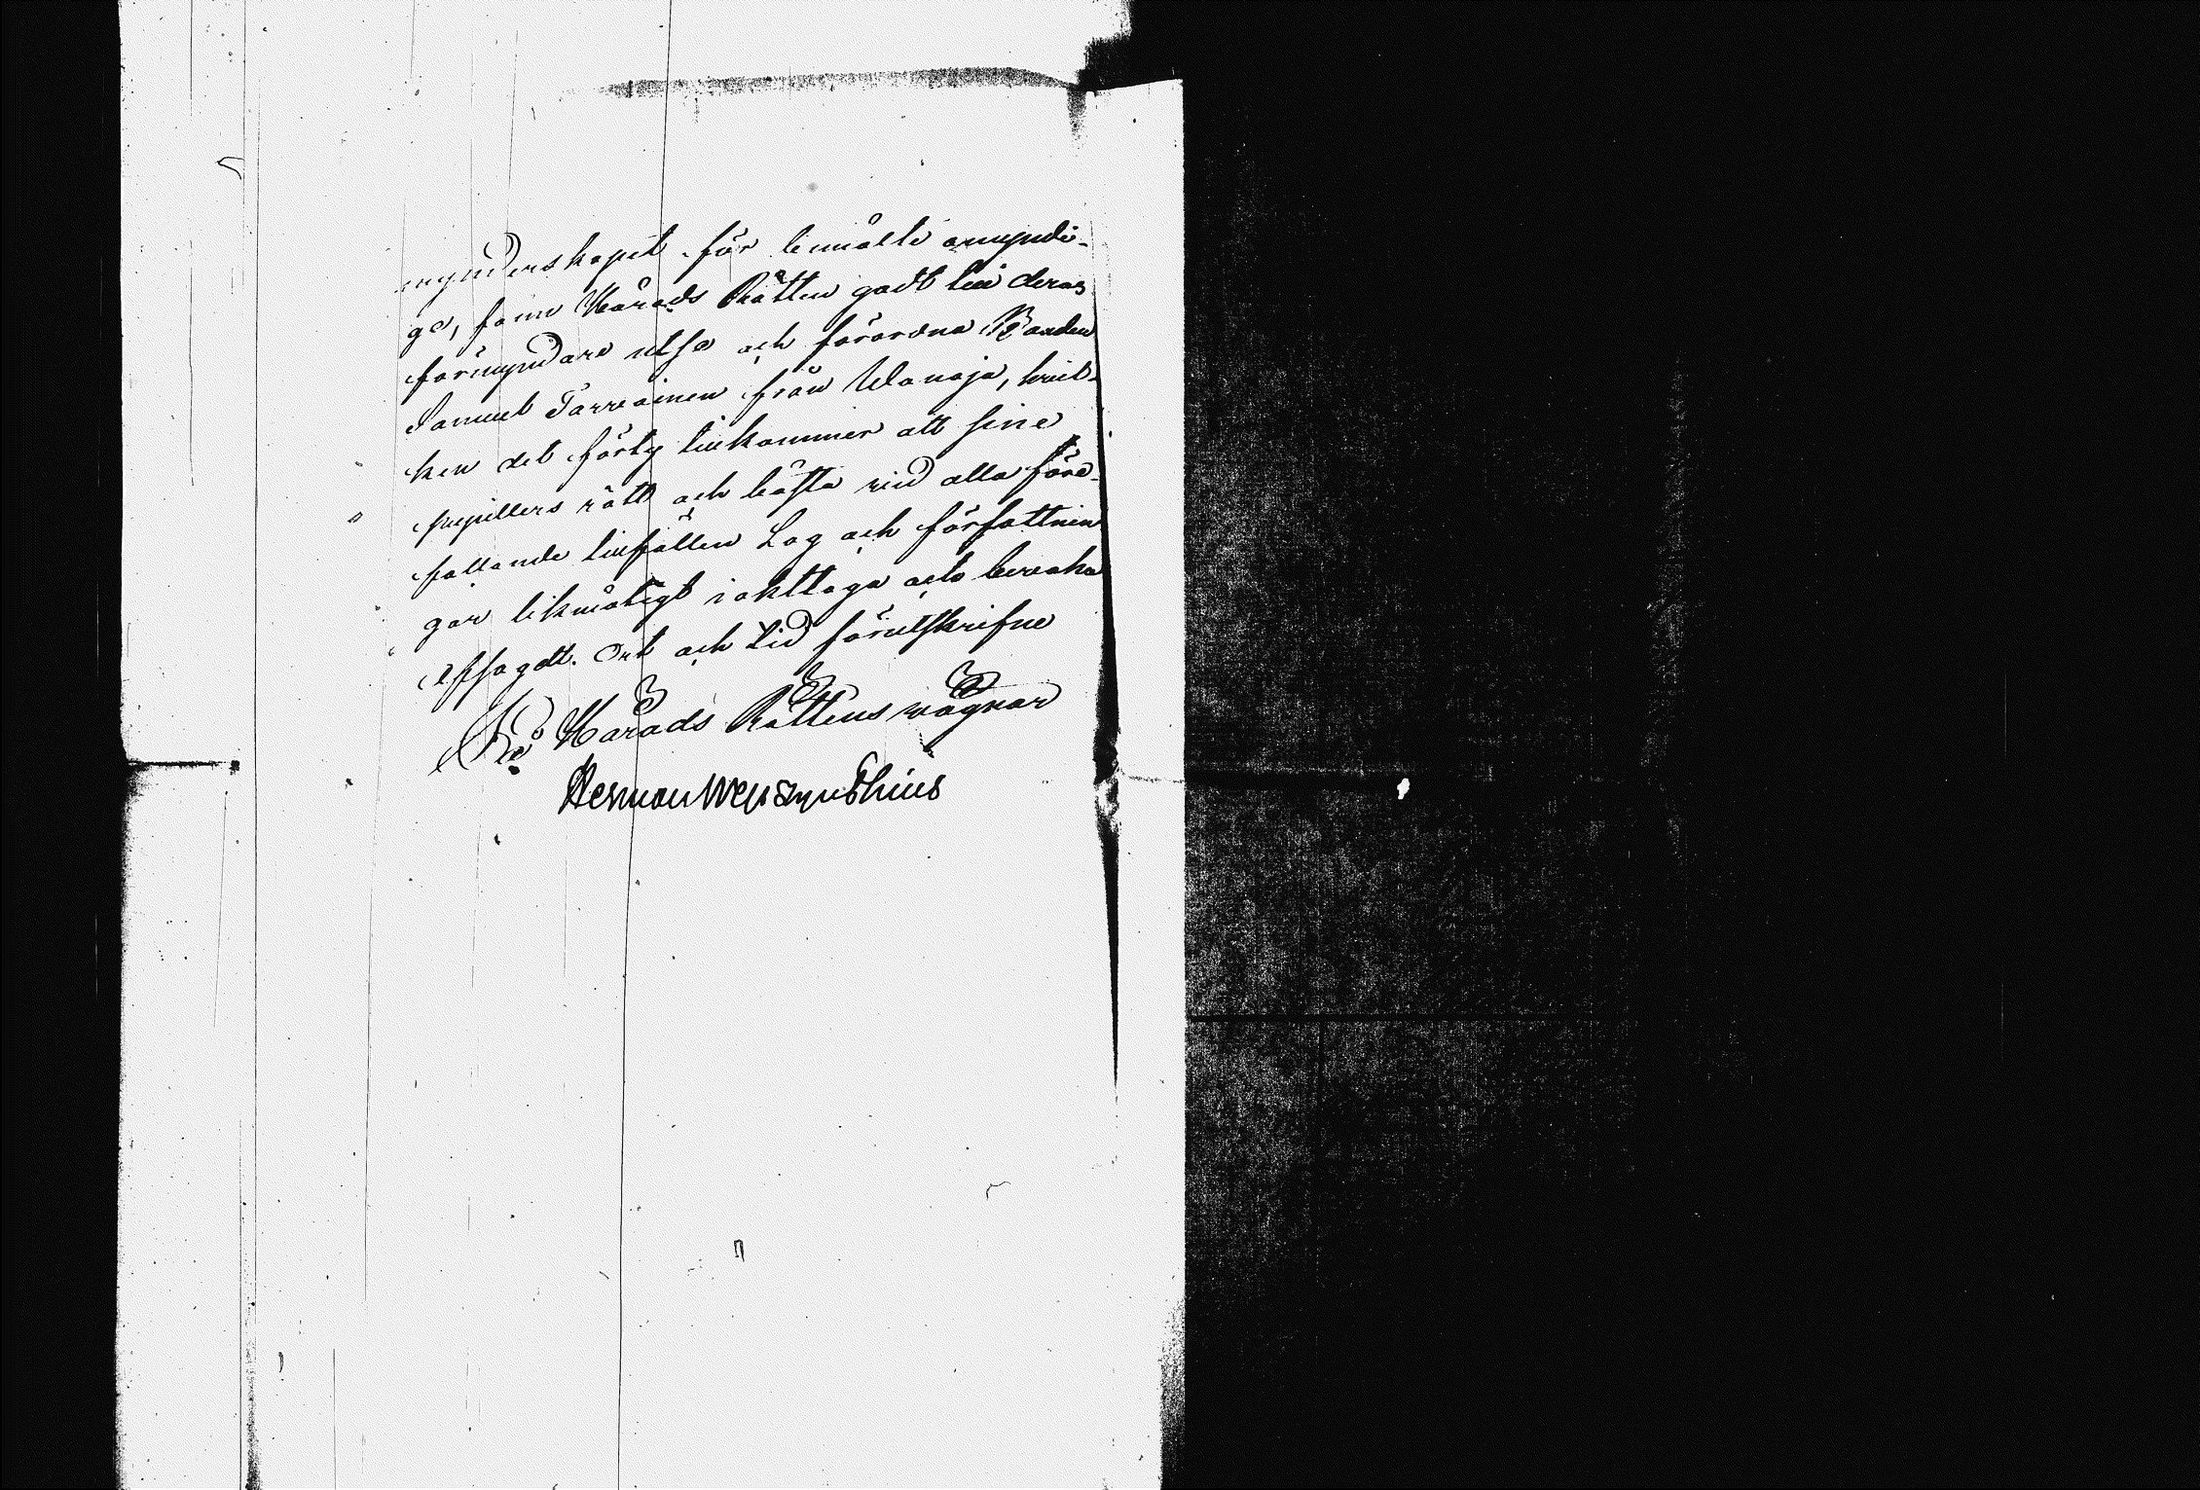 mynderskapet för bemälte omyndi-
ge, fann Härads Rätten godt till deras
förmyndare utse och förordna Bonden
Samuel Tarvainen från Wanaja, hvil-
ken det förty tillkommer att sine
pupillers rätt och bästa vid alla före-
fallande tillfällen Lag och författnin
gar likmätigt iakttaga och bevaka
Afsagdt. Ort och tid förutskrifne
På Härads Rättens vägnar
Herman